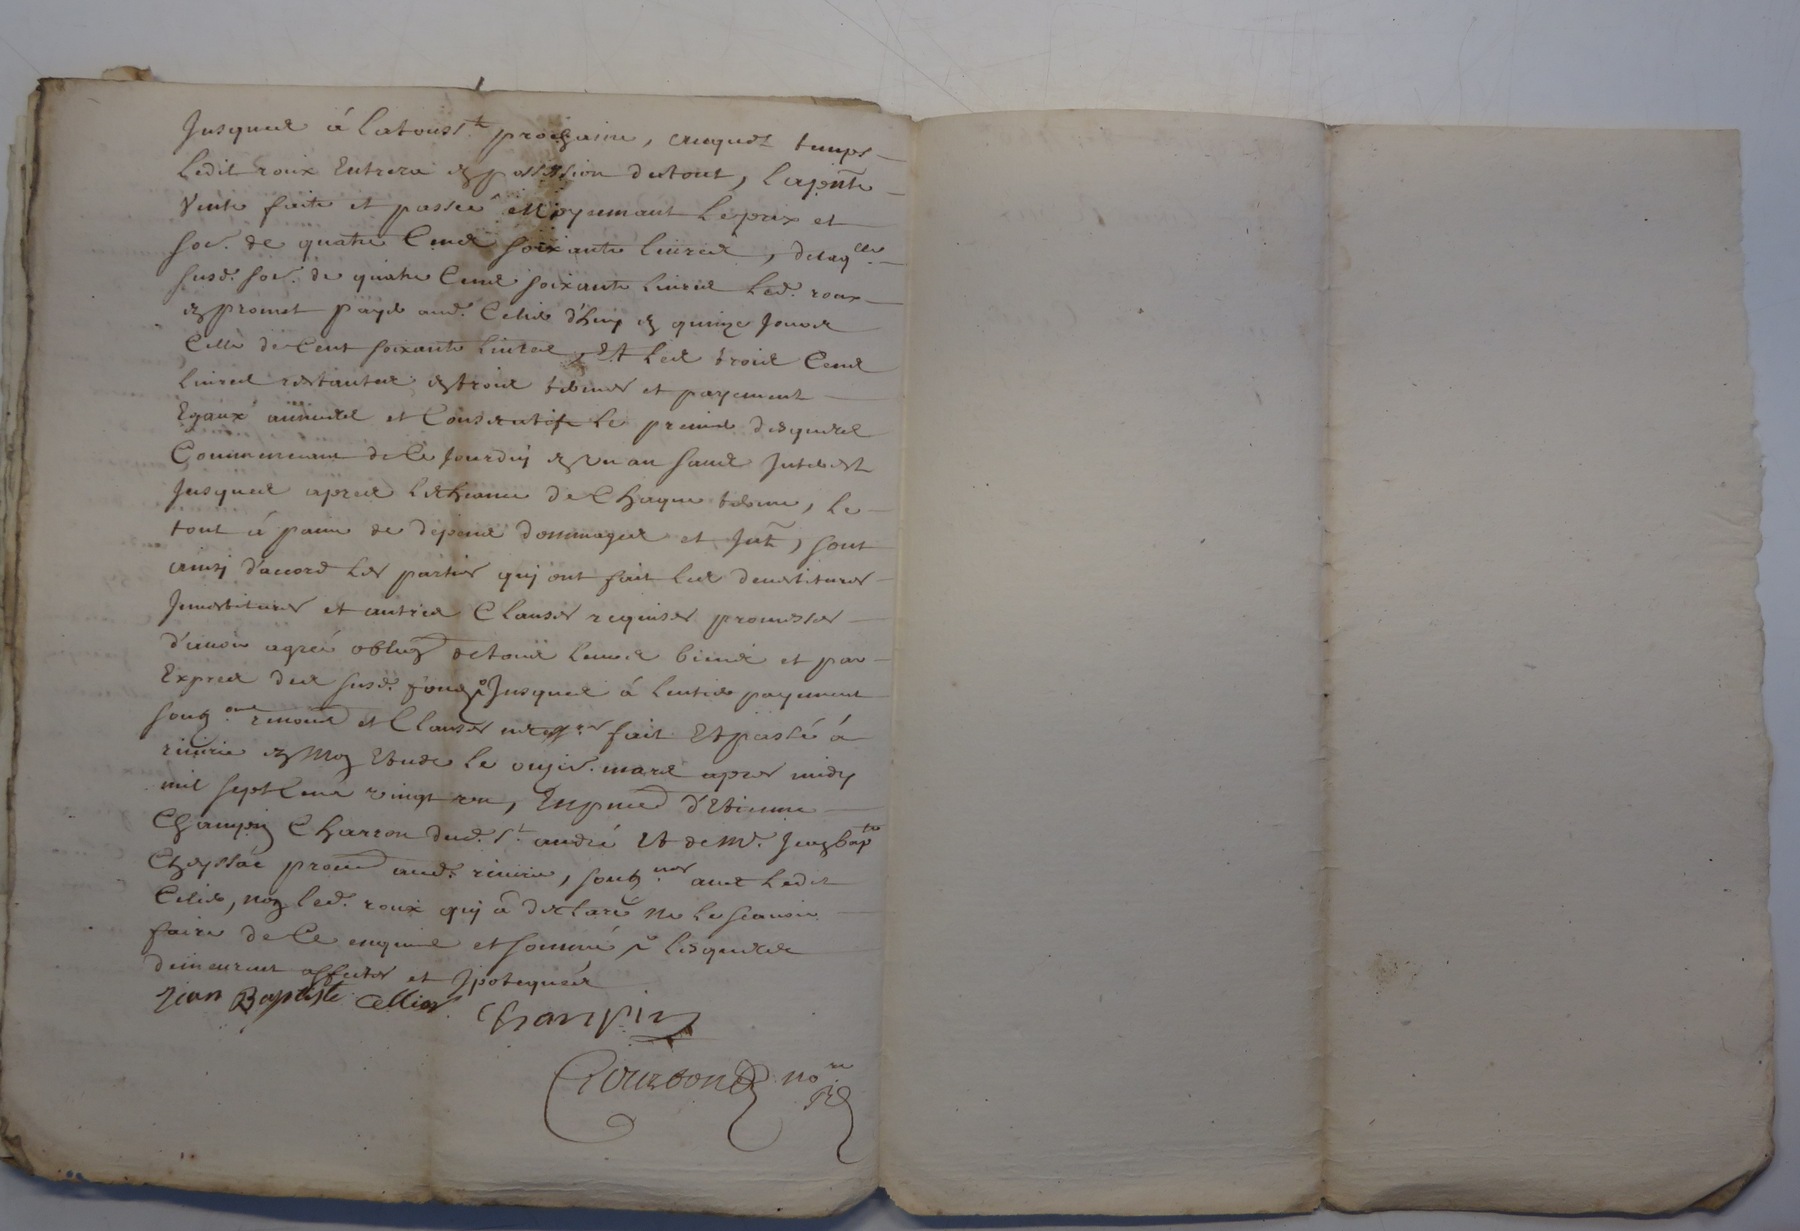 Jusques á latousst prochaine, auquel temps
ledit roux Entrera en possession detout, lapnte
Vente faite et passée Moyennant leprix et
so͂e. de quatre Cens soixante livres, delaqlle
susd. so͂e. de quatre Cens soixante livres led. roux
en promet payer aud. Celier d'huy en quinze Jours
Celle de Cent soixante livres, Et les trois Cens
livres restantes en trois termes et payement
Egaux annuels et Consecutifs le premier desquels
Commencant de Ce Jourduy en un an sans Interest
Jusques apres lecheance de Chaque terme, le
tout á paine de depens dommages et Int, sont
ainsy d'accord les parties quy ont fait les devestitures
Investitures et autres Clauses requises promesses
d'avoir agreé oblign de tous leurs biens et par
Expres des susd. fonds Jusques á lentier payement
soubon renoncn et Clauses necessres fait Et passé á
rivirie en Mon Etude le onzie. mars apres midy
mil sept Cens vingt un, En pnce d'Etienne
Champin Charron dud. St. andré Et de Mr. Jean bapte
Cheyssac aud. rivirie, soubnes avec ledit
Celier, non led. roux quy a declaré Ne le scavoir
faire de Ce enquis et sommé lesquels
demeurent affectes et Ipotequés
Jean Baptiste Cellier
Champin
Courbon nore
Rl